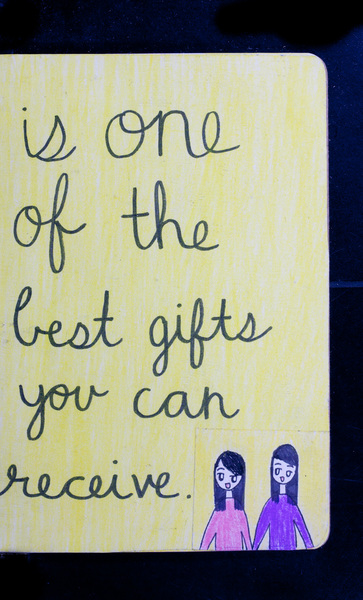 is one
of the
best gifts
you can
receive.